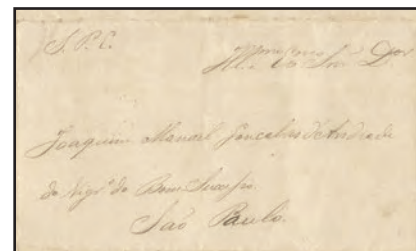 S. P. C.
Illmo. Exmo. Snr. Dor
Joaquim Manoel Goncalves de Andrade
do Bom Sucesso
São Paulo.